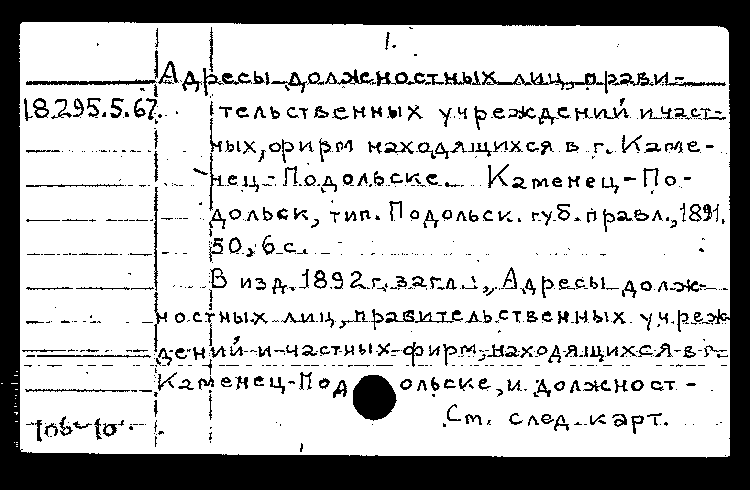 1.
Адресы должностных лиц, прави-
18.295.5.67.
тельственных учреждений и част-
ных, фирм находящихся в г. Каме-
нец-Подольске. Каменец-По-
дольск, тип. Подольск. губ. правл., 1891.
50, 6 с.
В изд. 1892 г. загл.: „Адресы долж-
ностных лиц, правительственных учреж-
дений и частных фирм, находящихся в г.
Каменец-Подольске, и должност-
См. след. карт.